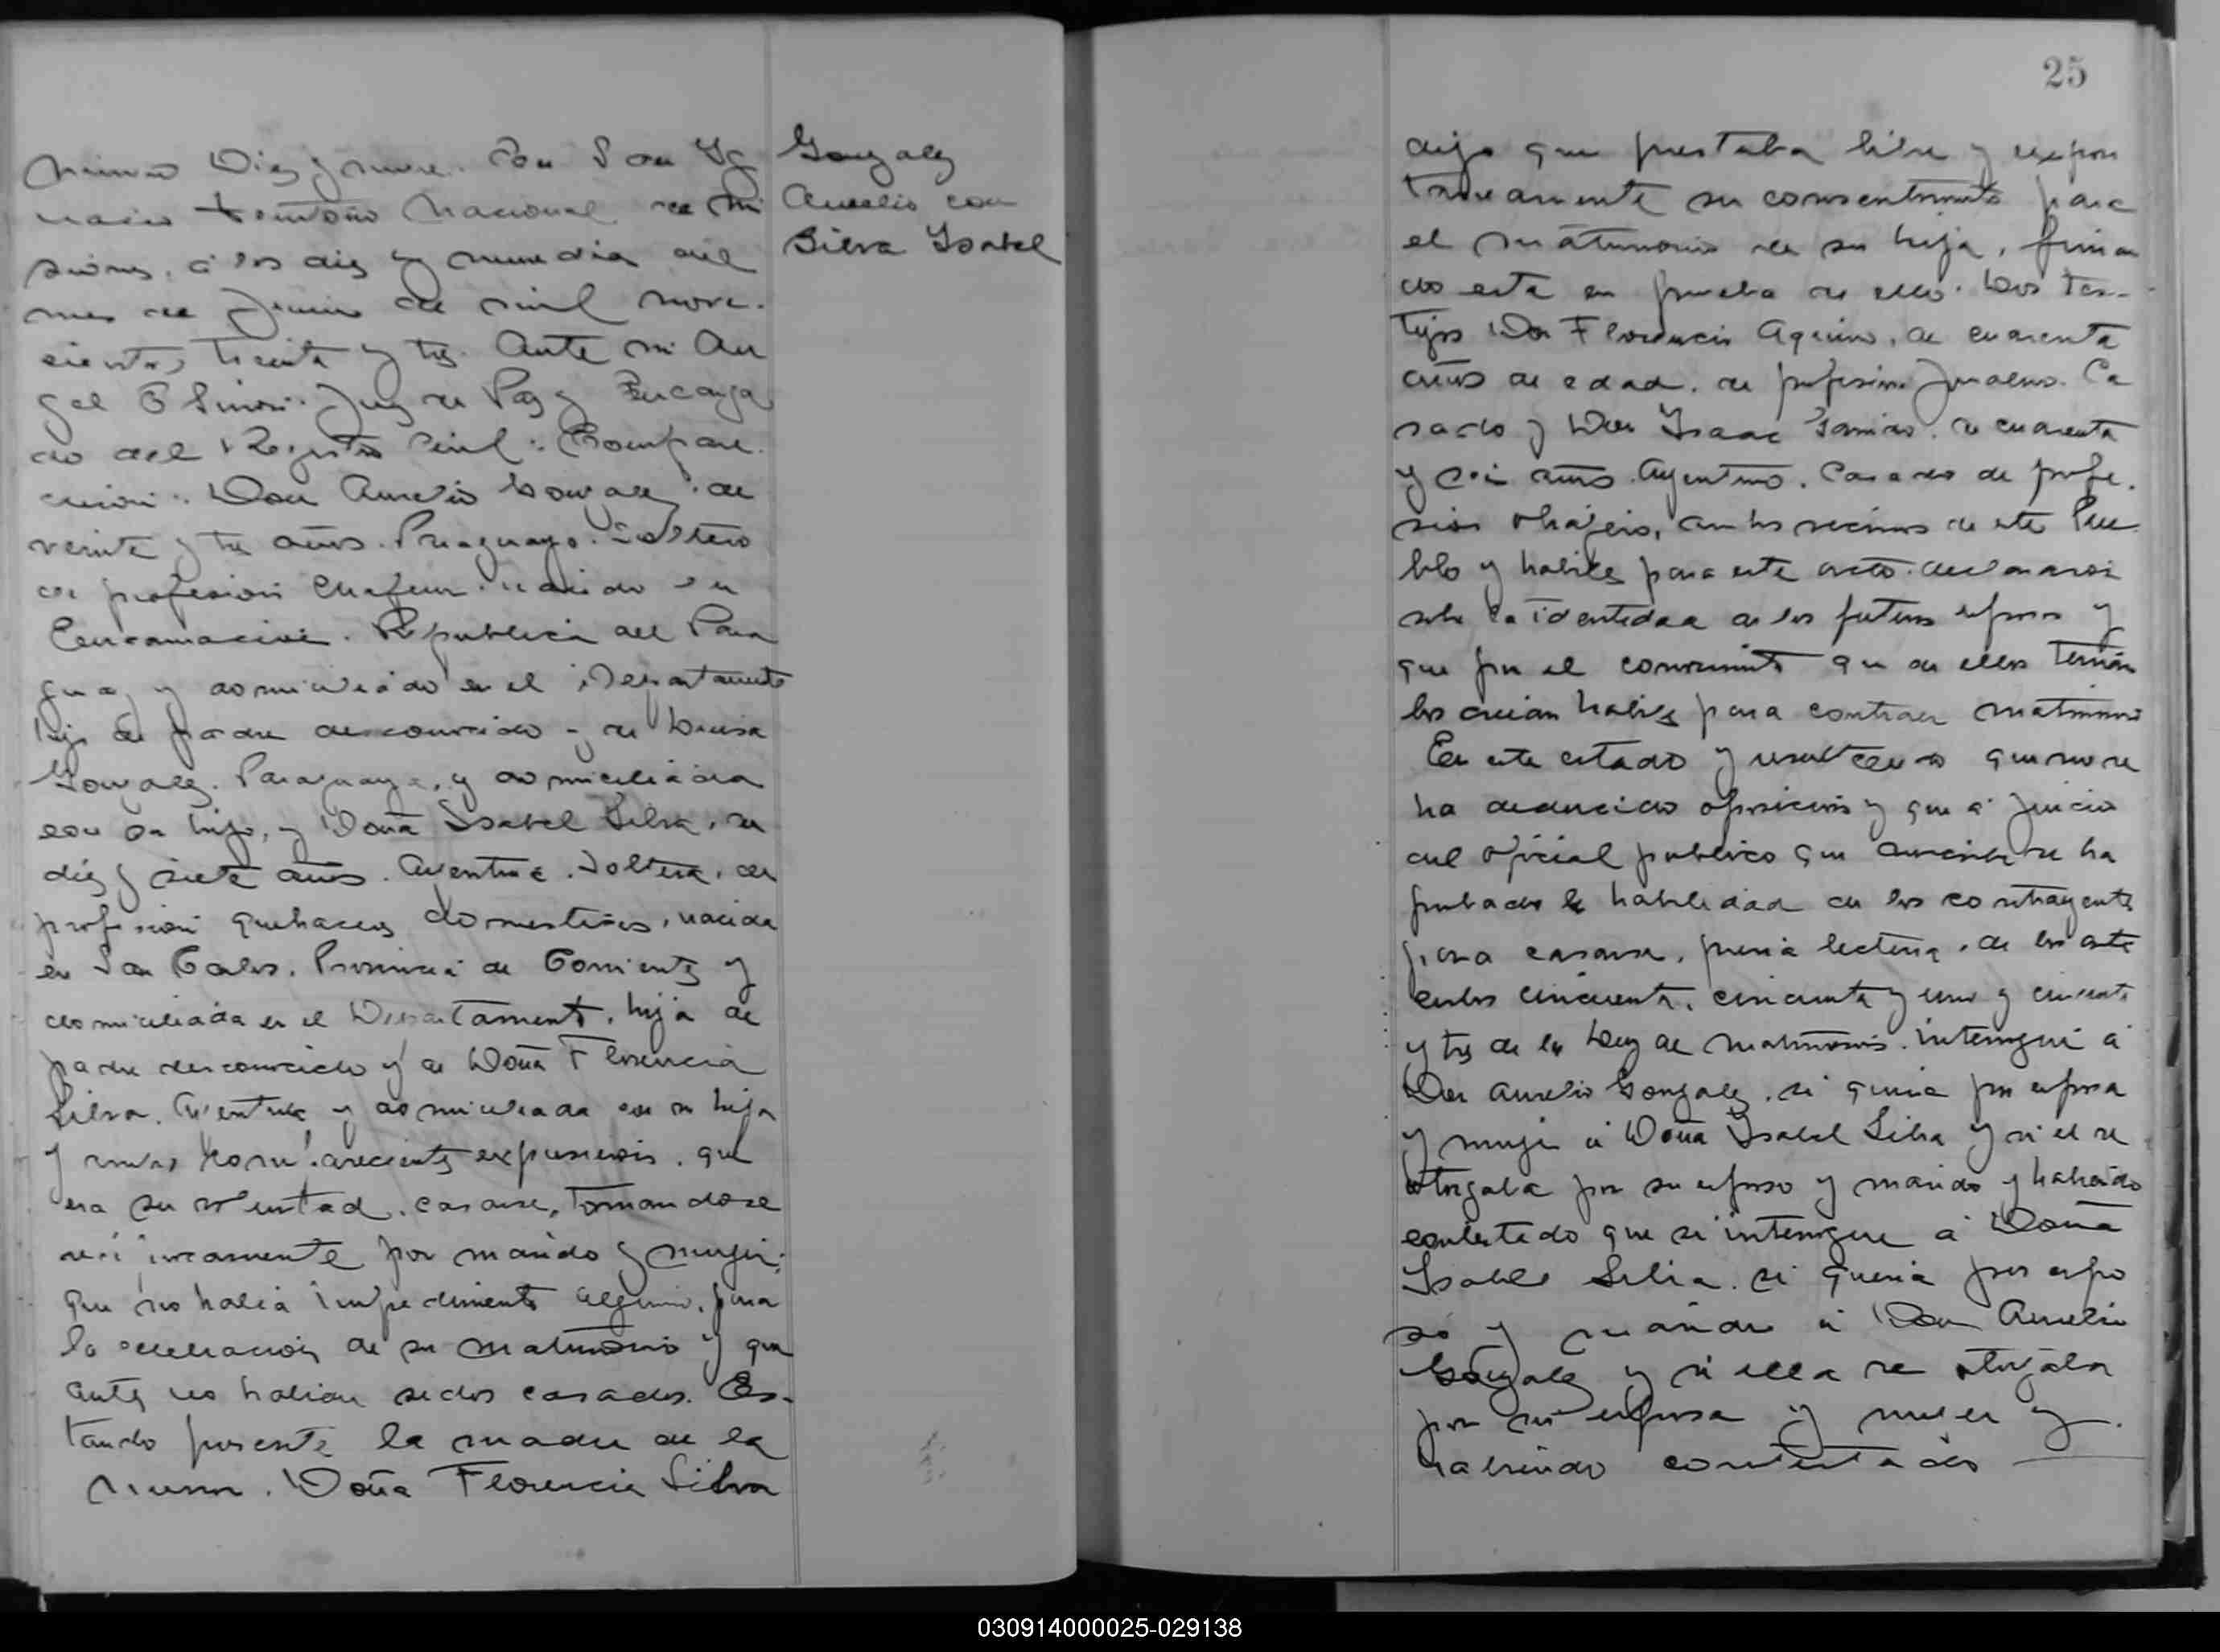 Numero Diez y nueve. En San Yg
nacio territorio Nacional de Mi
siones, á los diez y nueve dia del
mes de Junio de mil nove-
cientos treinta y tres. Ante mi An
gel Juez de Paz y Encarga
do del Registro Civil: Compare-
cieron: Don Aurelio Gonzalez, de
veinte y tres años. Paraguayo. Soltero
de profesion Chofeur. nacido en
Encarnacion. Republica del Para
guay y domiciliado en el Departamento
hijo de padre desconocido y de Luisa
Gonzalez. Paraguaya, y domiciliada
con su hijo, y Doña Isabel Silva, de
diez y siete años. Argentina. Soltera, de
profesion quehaceres domesticos, nacida
en San Carlos. Provincia de Corrientes y
domiciliada en el Departamento, hija de
padre desconocido y de Doña Florencia
Silva. Argentina y domiciliada con su hija
y ambos comparecientes expusieron. que
era su voluntad, casarse, tomandose
reciprocamente por marido y mujer;
que no habia impedimento alguno, para
la celebracion de su matrimonio y que
antes no habian sidos casados. Es-
tando presente la madre de la
Doña Florencia Silva
Gonzalez
Aurelio con
Silva Ysabel
25
dijo que prestaba libre y expon
taneamente su consentimiento para
el matrimonio de su hija, firman
do esta en prueba de ello. Los Tes-
tigos Don Florencio Aquino, de cuarenta
años de edad, de profesion Jornalero. Ca
sado y Don Ysaac de cuarenta
y seis años. Argentino. Casado de profe-
sion ambos vecinos de este Pue
blo y habiles para este acto. declararon
sobre la identidad de los futuros esposos y
que por el conocimiento que de ellos tenian
los creian habiles para contraer matrimonio
En este estado y resultando que no se
ha deducido oposicion y que á juicio
del oficial publico que suscribe se ha
probado la habilidad de los contrayentes
para casarse, previa lectura, de los arti
culos cincuenta, cincuenta y uno y cincuenta
y tres de la Ley de matrimonio. interrogué á
Don Aurelio Gonzalez, si queria por esposa
y mujer á Doña Ysabel Silva y si el se
otorgaba por su esposo y marido y habiendo
contestado que si interrogue á Doña
Isabel Silva. si queria por espo
so y marido á Don Aurelio
Gonzalez y si ella se otorgaba
por su esposa y mujer y
habiendo contestado
030914000025-029138